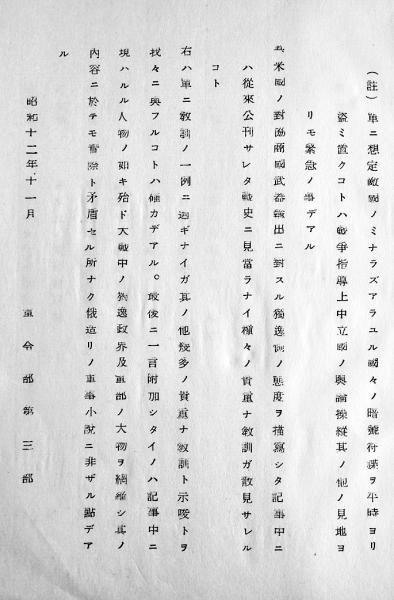 (註)單ニ想定敵國ノミナラズアラユル國々ノ暗號符諜ヲ平時ヨリ
盜ミ置クコトハ戰爭指導上中立國ノ輿論操縱其ノ他ノ見地ヨ
リモ緊急ノ事デアル
五、米國ノ對協商國武器輸出ニ對スル獨逸側ノ態度ヲ描寫シタ記事中ニ
ハ從來公刊サレタ戰史ニ見當ラナイ種々ノ貴重ナ敎訓ガ散見サレル
コト
右ハ單ニ敎訓ノ一例ニ過ギナイガ其ノ他幾多ノ貴重ナ敎訓ト示唆トヲ
我々ニ與フルコトハ確カデアル。最後ニ一言附加シタイノハ記事中ニ
現ハルル人物ノ如キ殆ド大戰中ノ獨逸政界及軍部ノ大物ヲ網羅シ其ノ
內容ニ於テモ實際ト矛盾セル所ナク俄造リノ軍事小說ニ非ザル點デア
ル
昭和十二年十一月
軍令部第三部